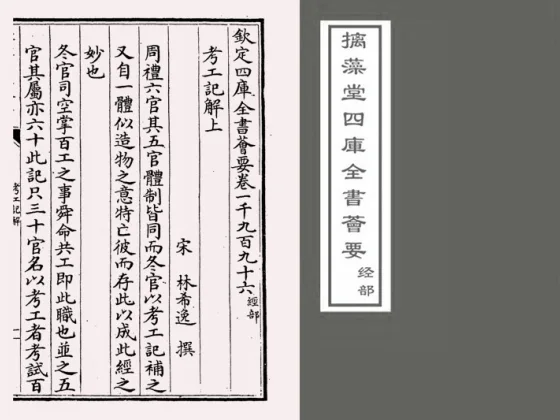 摛藻堂四庫全書薈要
经部
欽定四庫全書薈要卷一千九百九十六經部
考工記解上
宋 林希逸 撰
周禮六官其五官體制皆同而冬官以考工記補之
又自一體似造物之意特亡彼而存此以成此經之
妙也
冬官司空掌百工之事舜命共工即此職也並之五
官其屬亦六十此記只三十官名以考工者考試百
考工記解